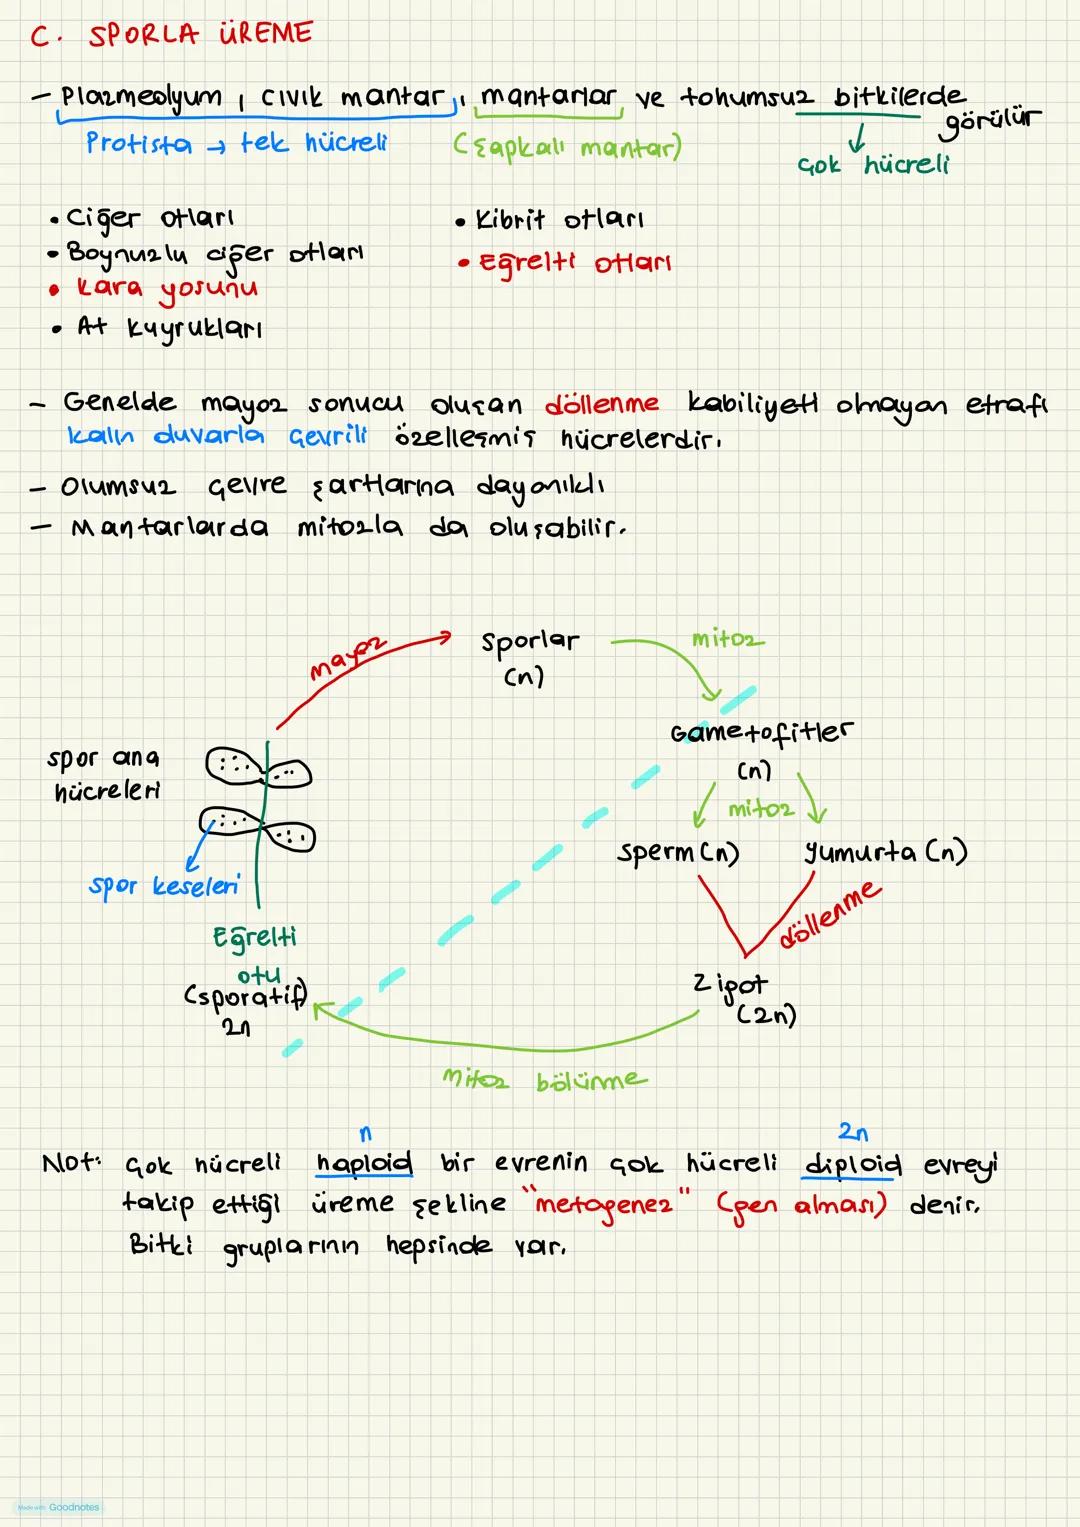 C. SPORLA ÜREME
- Plazmodyum, cıvık mantar, mantarlar ve tohumsuz bitkilerde görülür
Protista → tek hücreli
(şapkalı mantar)
çok hücreli
• Ciğer otları
• Boynuzlu ciğer otları
• Kara yosunu
• At kuyrukları
• Kibrit otları
• Eğrelti otları
- Genelde mayoz sonucu oluşan döllenme kabiliyeti olmayan etrafı
kalın duvarla çevrili özelleşmiş hücrelerdir.
- Olumsuz çevre şartlarına dayanıklı
- Mantarlarda mitozla da oluşabilir.
mayoz
sporlar
(n)
mitoz
Gametofitler
(n)
mitoz
sperm (n)
yumurta (n)
döllenme
Zigot
(2n)
mitoz bölünme
spor ana
hücreleri
spor keseleri
Eğrelti
otu
(sporatif)
2n
n
2n
Not: çok hücreli haploid bir evrenin çok hücreli diploid evreyi
takip ettiği üreme şekline "metagenez" (gen alması) denir.
Bitki gruplarının hepsinde var.
Made with Goodnotes